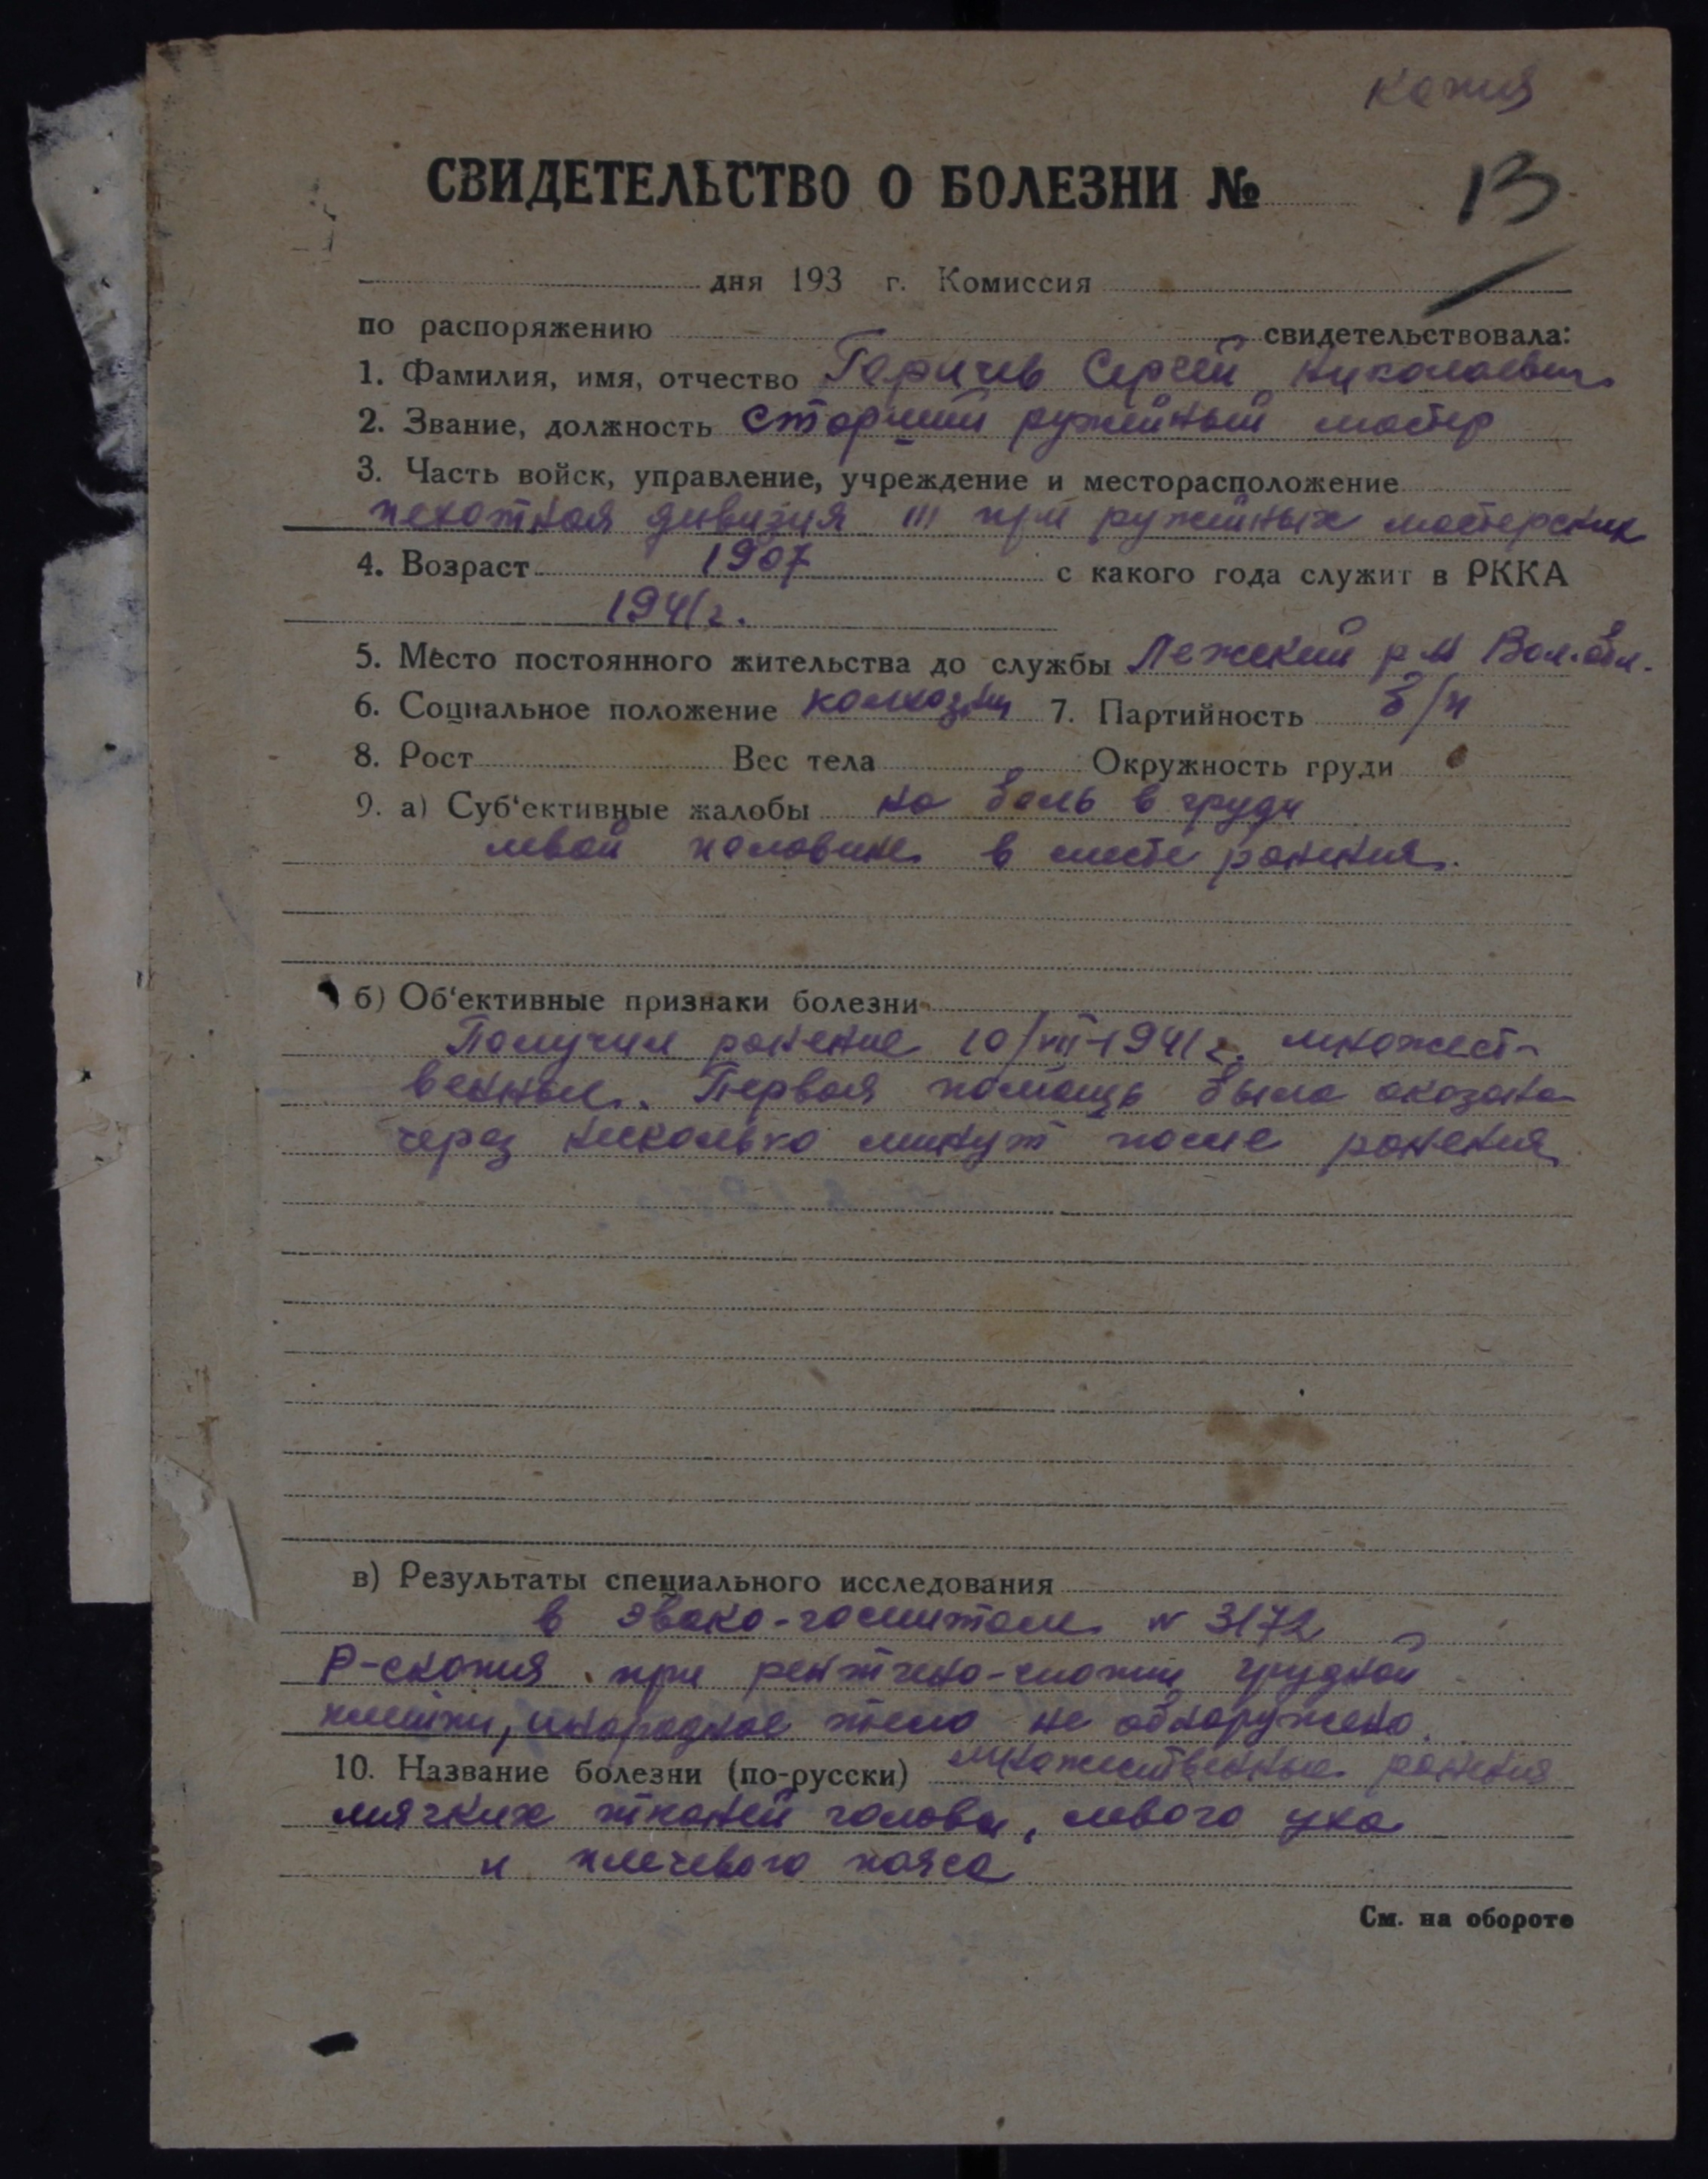 копия
СВИДЕТЕЛЬСТВО О БОЛЕЗНИ №
13
дня 193 г. Комиссия
по распоряжению свидетельствовала:
1. Фамилия, имя, отчество Горичев Сергей Николаевич
2. Звание, должность старший ружейный мастер
3. Часть войск, управление, учреждение и месторасположение
пехотная дивизия 111 при ружейных мастерских
4. Возраст 1907 с какого года служит в РККА
1941 г.
5. Место постоянного жительства до службы Лежский р-н Вол. обл.
6. Социальное положение колхозник 7. Партийность б/п
8. Рост Вес тела Окружность груди
9. а) Суб‘ективные жалобы на боль в груди
левой половине в месте ранения.
б) Об‘ективные признаки болезни
Получил ранение 10/VIII-1941 г. множест-
венные. Первая помощь была оказана
через несколько минут после ранения
в) Результаты специального исследования
в эвако-госпитале № 3172
Р-скопия при рентгено-скопии грудной
клетки, инородное тело не обнаружено.
10. Название болезни (по-русски) множественные ранения
мягких тканей головы, левого уха
и плечевого пояса
См. на обороте